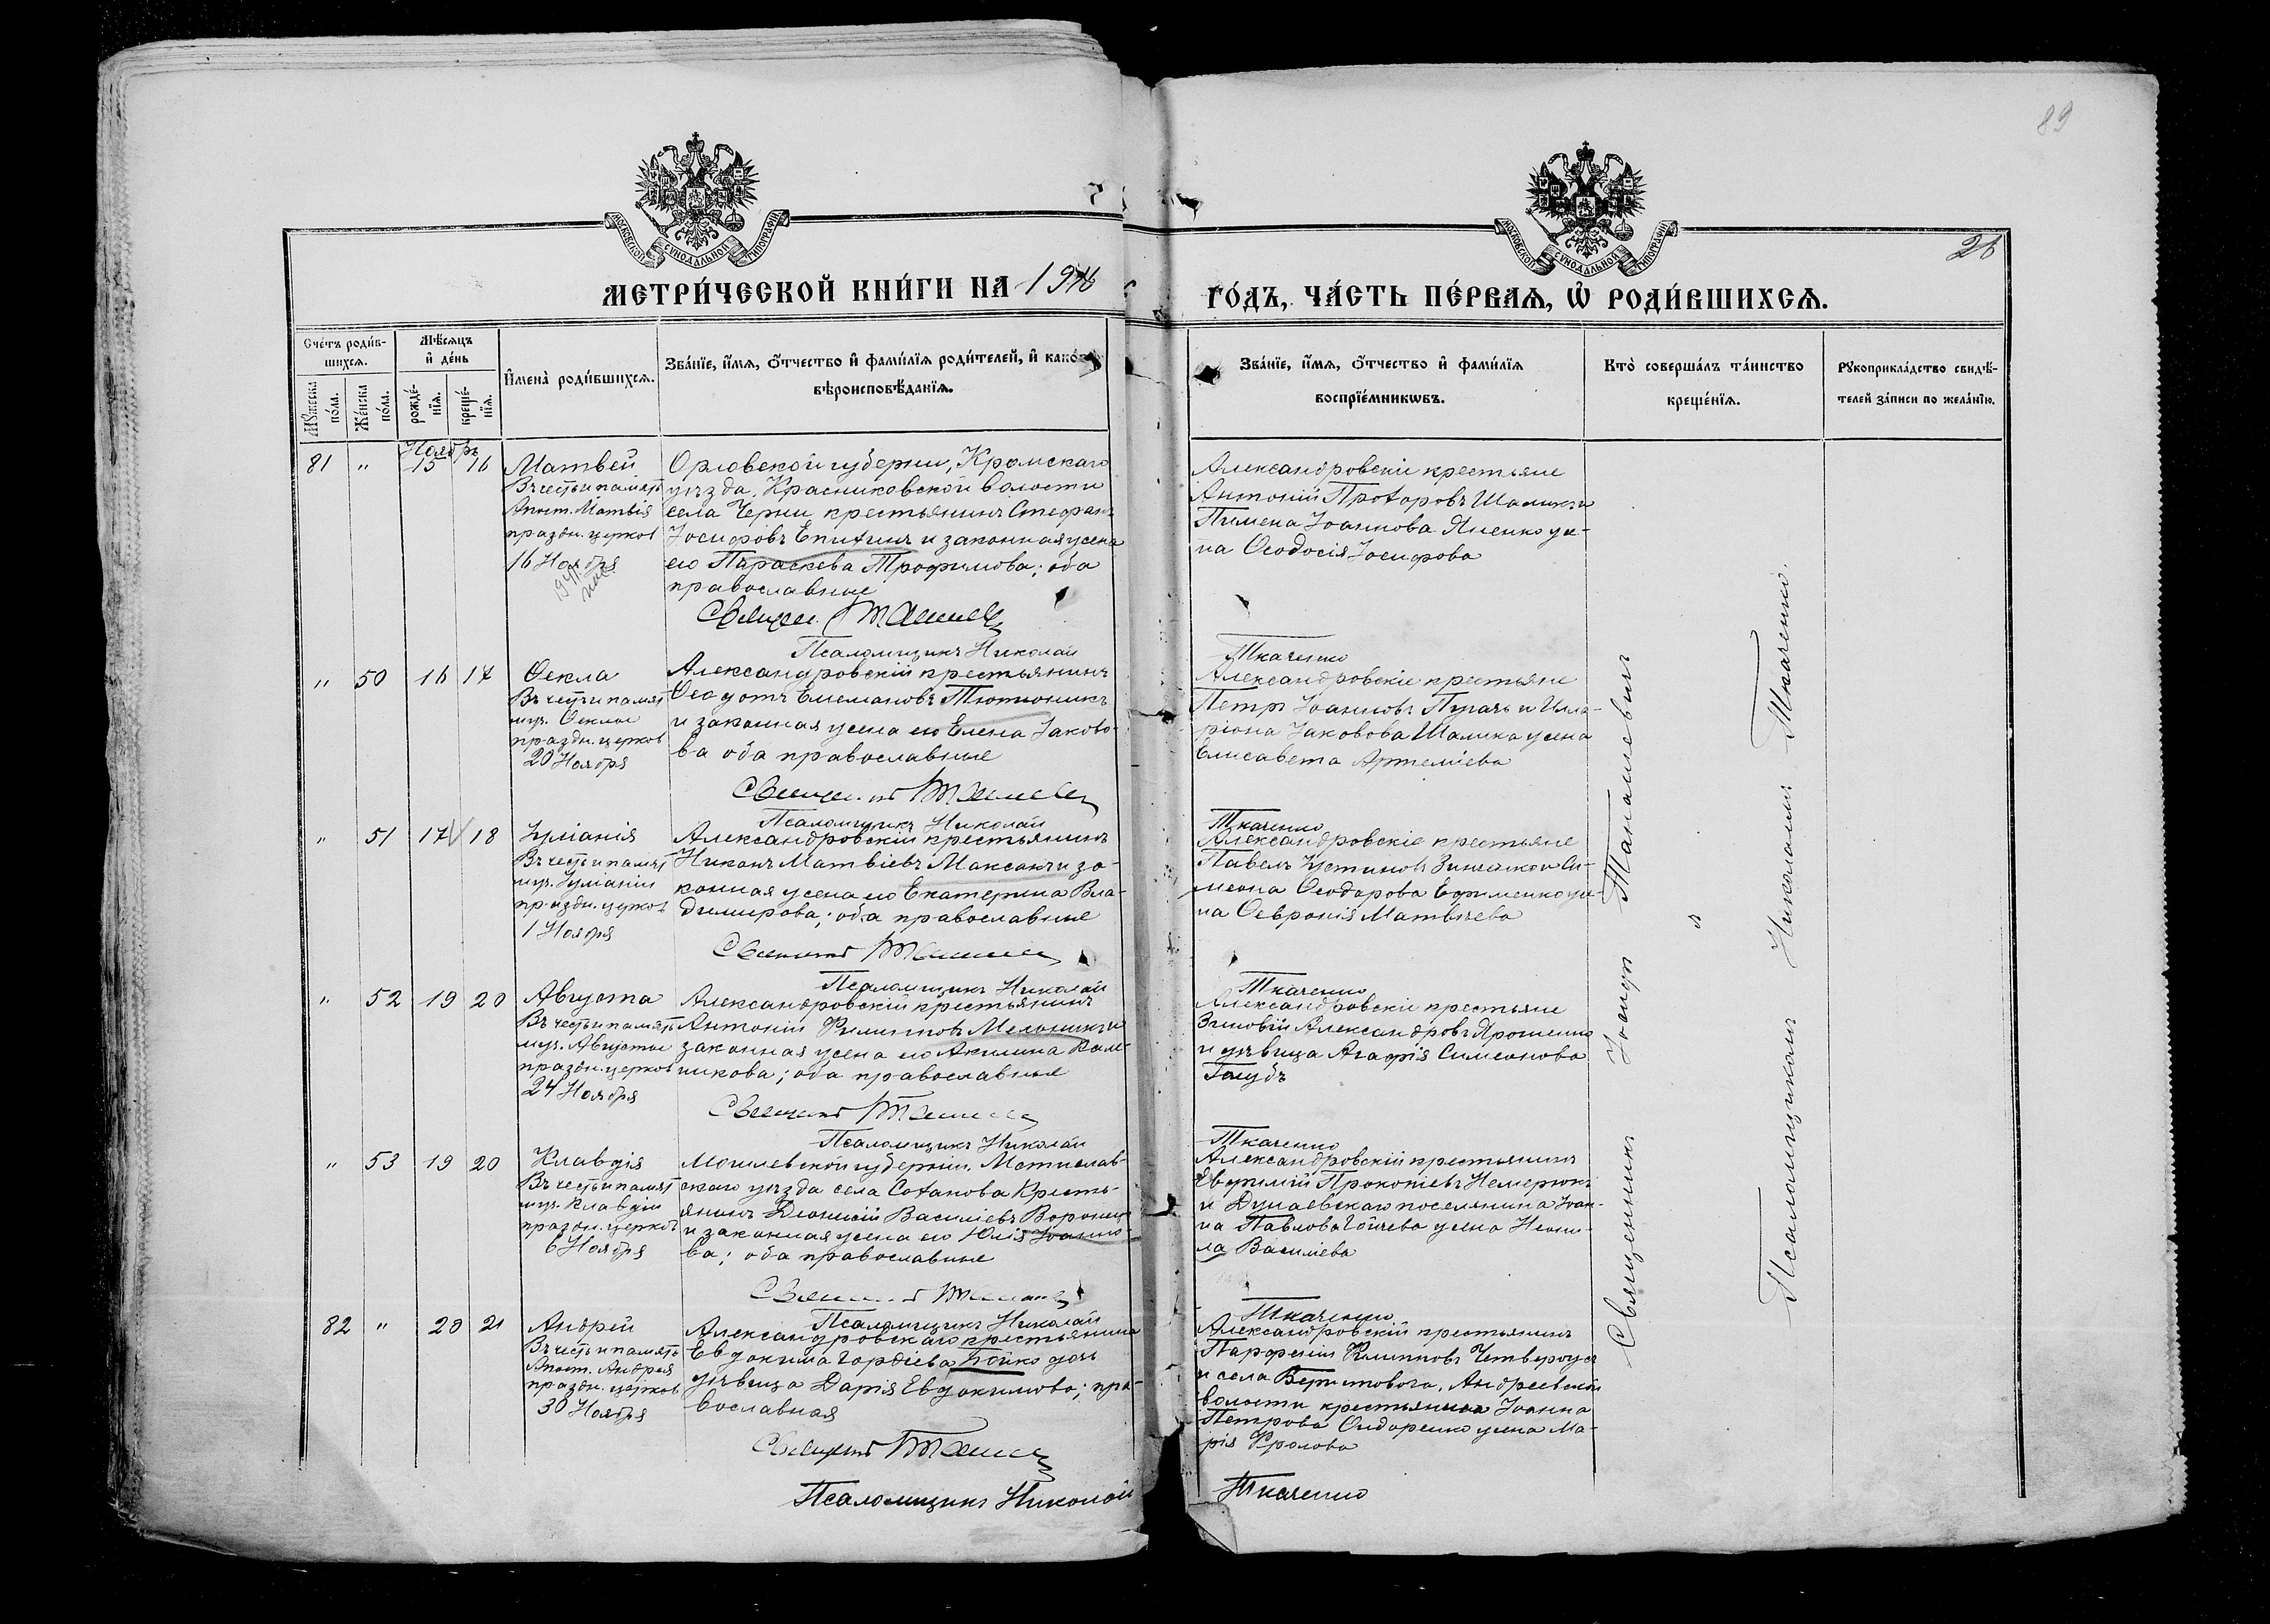 89
26
МОСКОВСКОЙ СѴНОДАЛЬНОЙ ТИПОГРАФІИ
МОСКОВСКОЙ СѴНОДАЛЬНОЙ ТИПОГРАФІИ
МЕТРИ́ЧЕСКОЙ КНИ́ГИ НА 19
ГО́ДЪ, ЧА́СТЬ ПЕ́РВАѦ, Ѽ РОДИ́ВШИХСѦ.
Сче́тъ роди́в-
шихся.
Мѣ́сяцъ
и҆ де́нь
Мꙋ́жеска
по́ла.
Же́нска
по́ла.
рожде́-
нїя.
креще́-
нїя.
И҆мена̀ роди́вшихся.
Зва́нїе, и҆́мя, ѻ҆́тчество и҆ фами́лїя роди́телей, и҆ како́гѡ
вѣроисповѣ́данїя.
Зва́нїе, и҆́мя, ѻ҆́тчество и҆ фами́лїя
воспрїе́мникѡвъ.
Кто̀ соверша́лъ та́инство
креще́нїя.
Рꙋкоприкла́дство свидѣ́-
телей за́писи по жела́нїю.
Ноябрь
81 " 15 16
Матвей
Въ честь и память
Апост. Матвія
праздн. церков
16 Ноября
Орловской губерніи, Кромскаго
уѣзда, Красниковской волости
села Черни крестьянинъ Стефанъ
Іосифовъ Епихинъ и законная жена
его Параскева Трофимова; оба
православные
Псаломщикъ Николай
Александровскіе крестьяне
Антоній Прохоровъ Шалыка и
Пимена Іоаннова Яценко же-
на Ѳеодосія Іосифова
Ткаченко
" 50 16 17
Ѳекла
Въ честь и памят
муч. Ѳеклы
праздн. церков
20 Ноября
Александровскій крестьянинъ
Ѳеодотъ Емелановъ Тютюникъ
и законная жена его Елена Іаково-
ва оба православные
Псаломщикъ Николай
Александровскіе крестьяне
Петръ Іоанновъ Пугачъ и Илла-
ріона Іаковова Шалыка жена
Елисавета Артеміева
Ткаченко
" 51 17 18
Іуліанія
Въ честь и памят
муч. Іуліаніи
праздн. церков
1 Ноября
Александровскій крестьянинъ
Никонъ Матвіевъ Максакъ и за-
конная жена его Екатерина Вла-
димирова; оба православные
Псаломщикъ Николай
Александровскіе крестьяне
Павелъ Іустиновъ и Си-
меона Ѳеодорова Ефименко же-
на Ѳевронія Матвѣева
Ткаченко
" 52 19 20
Августа
Въ честь и память
муч. Августы
праздн. церков
24 Ноября
Александровскій крестьянинъ
Антоній Филипповъ Мельникъ и
законная жена его Акилина Кале-
никова; оба православные
Псаломщикъ Николай
Александровскіе крестьяне
Зиновій Александровъ Ярошенко
и дѣвица Агафія Симеонова
Голубъ
Ткаченко
" 53 19 20
Клавдія
Въ честь и памят
муч. Клавдіи
праздн. церков
6 Ноября
Могилевской губерніи, Мстислав-
скаго уѣзда села Соханова Кресть-
янинъ Діонисій Василіевъ Воронец
и законная жена его Юлія Іоанно-
ва; оба православные
Псаломщикъ Николай
Александровскій крестьянинъ
Евфимій Прокопіевъ Немерюкъ
и Дунаевскаго поселянина Іоан-
на Павлова жена Неони-
ла Василіева
Ткаченко
82 " 20 21
Андрей
Въ честь и память
Апост. Андрея
праздн. церков
30 Ноября
Александровскаго крестьянина
Евдокима Гордіева Бойко дочь
дѣвица Дарія Евдокимова; пра-
вославная
Псаломщикъ Николай
Александровскій крестьянинъ
Парфеній Климовъ Четвероус
и села Берестовога, Андреевской
волости крестьянина Іоанна
Петрова Сидоренко жена Ма-
рія Фролова
Ткаченко
Священникъ Іоаннъ Танамевичъ
и
Псаломщикомъ Николаемъ Ткаченко.